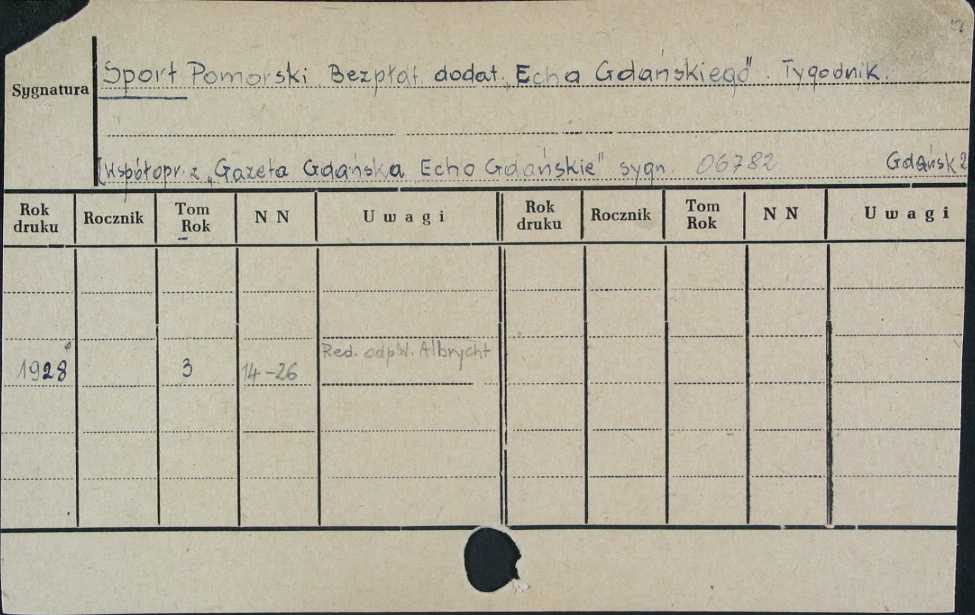 Sygnatura
Sport Pomorski. Bezpłat. dodat. „Echa Gdańskiego". Tygodnik.
[Współopr. z „Gazeta Gdańska Echo Gdańskie" sygn. 06782 Gdańsk 2
Rok druku Rocznik Tom Rok N N Uwagi Rok druku Rocznik Tom Rok N N Uwagi
Red. odp W. Albrycht
1928 3 14-26